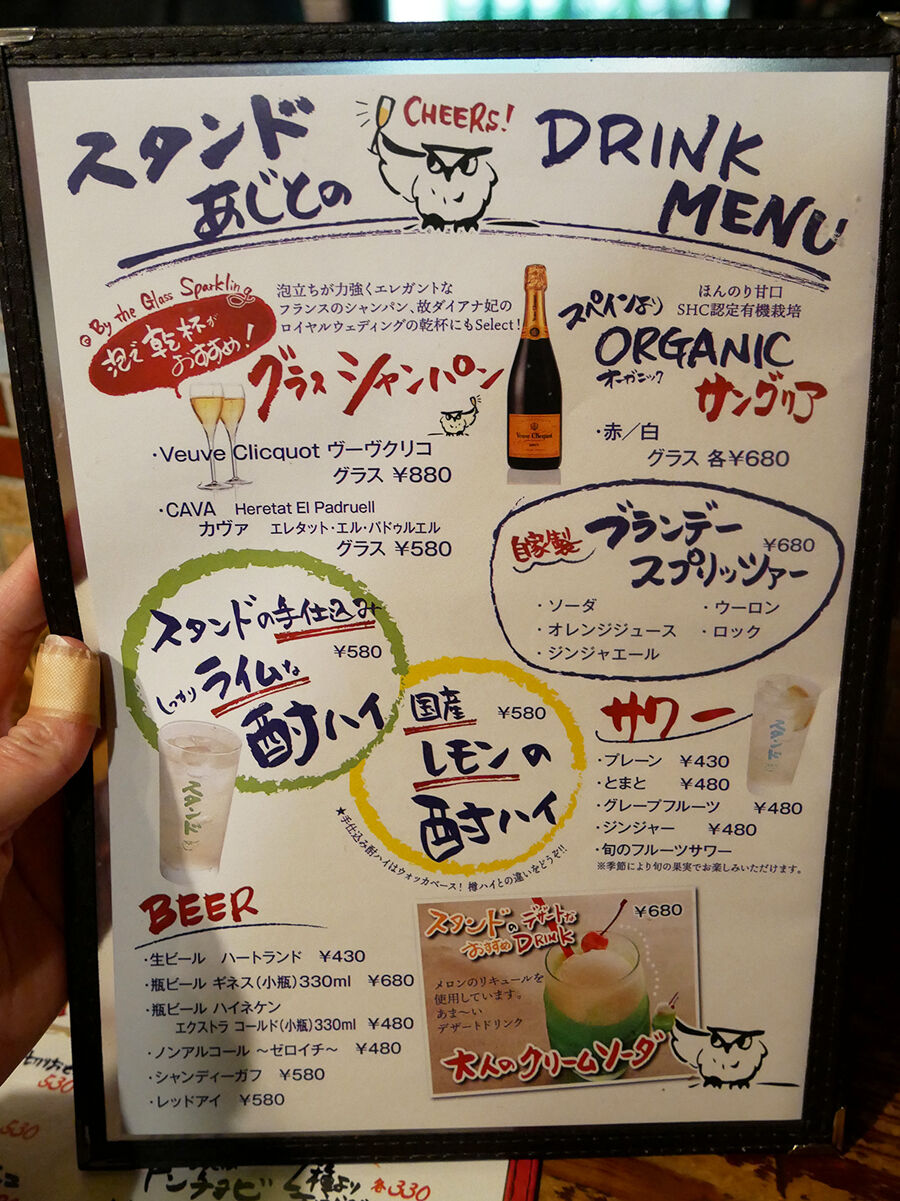 スタンド
あじとの
CHEERS!
DRINK
MENU
By the Glass Sparkling
泡で乾杯が
おすすめ!
泡立ちが力強くエレガントな
フランスのシャンパン、故ダイアナ妃の
ロイヤルウェディングの乾杯にもSelect!
グラスシャンパン
・Veuve Clicquot ヴーヴクリコ
グラス ¥880
・CAVA Heretat El Padruell
カヴァ エレタット・エル・パドゥルエル
グラス ¥580
Veuve Clicquot
スペインより
ほんのり甘口
SHC認定有機栽培
ORGANIC
オーガニック
サングリア
・赤/白
グラス 各¥680
自家製
ブランデー
¥680
スプリッツァー
・ソーダ
・ウーロン
・オレンジジュース
・ロック
・ジンジャエール
スタンドの手仕込み
¥580
しっかりライムな
酎ハイ
国産
¥580
レモンの
酎ハイ
★手仕込み酎ハイはウォッカベース!樽ハイとの違いをどうぞ!!
サワー
・プレーン ¥430
・とまと ¥480
・グレープフルーツ ¥480
・ジンジャー ¥480
・旬のフルーツサワー
※季節により旬の果実でお楽しみいただけます。
BEER
・生ビール ハートランド ¥430
・瓶ビール ギネス(小瓶)330ml ¥680
・瓶ビール ハイネケン
エクストラ コールド(小瓶)330ml ¥480
・ノンアルコール ~ゼロイチ~ ¥480
・シャンディーガフ ¥580
・レッドアイ ¥580
スタンドのデザートな
おすすめDRINK
¥680
メロンのリキュールを
使用しています。
あま〜い
デザートドリンク
大人のクリームソーダ
530
530
種より
各330